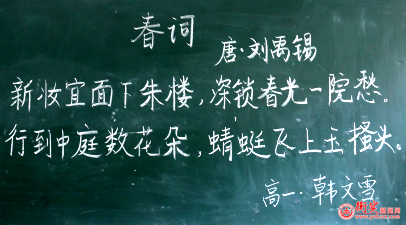 春词
唐·刘禹锡
新妆宜面下朱楼,深锁春光一院愁。
行到中庭数花朵,蜻蜓飞上玉搔头。
高一·韩文雪